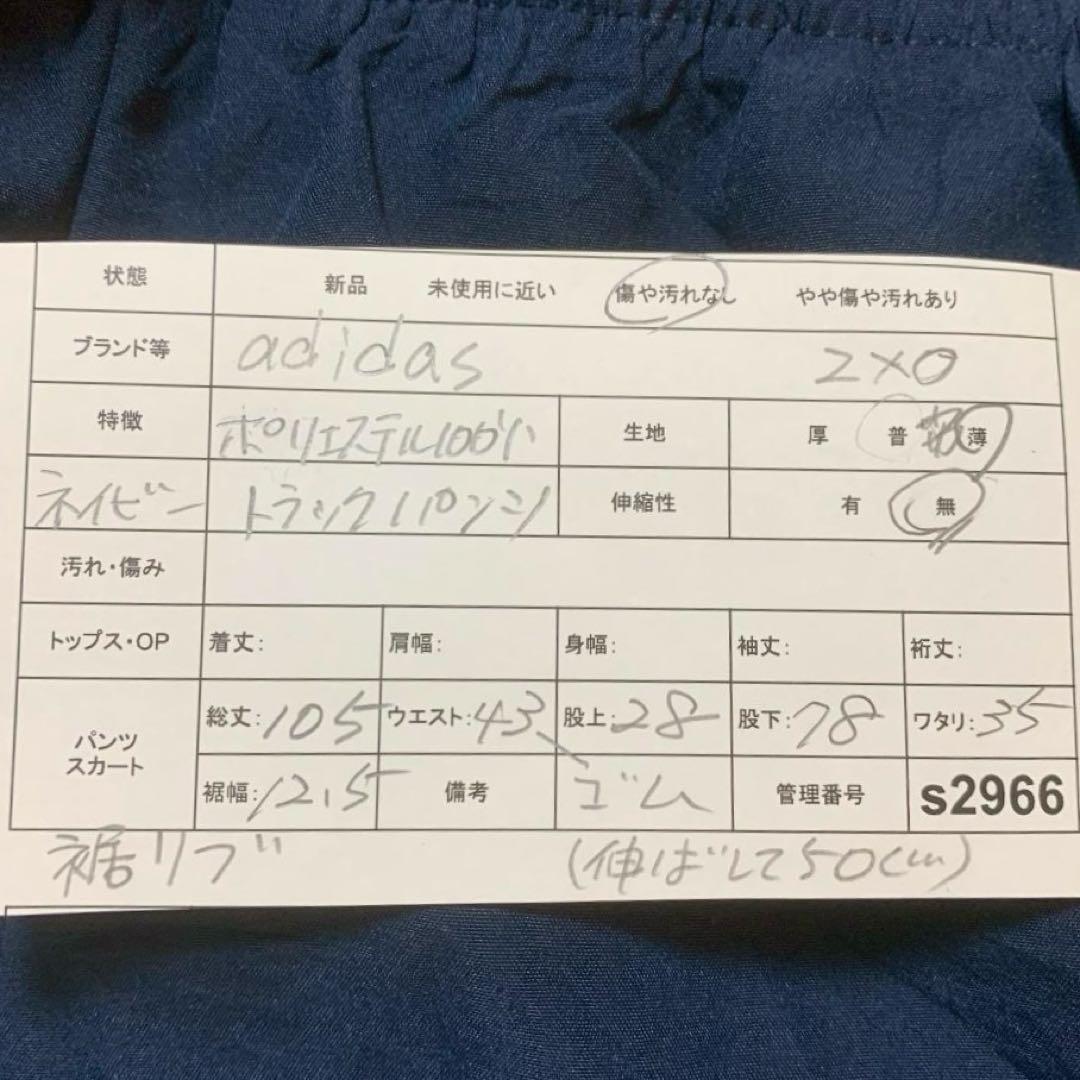 状態 新品 未使用に近い 傷や汚れなし やや傷や汚れあり
ブランド等 adidas 2XO
特徴 ポリエステル100% 生地 厚 普 薄
ネイビー トラックパンツ 伸縮性 有 無
汚れ・傷み
トップス・OP 着丈: 肩幅: 身幅: 袖丈: 裄丈:
パンツ スカート 総丈:105 ウエスト:43 股上:28 股下:78 ワタリ:35
裾幅:12.5 備考 ゴム 管理番号 s2966
裾リブ (伸ばして50cm)